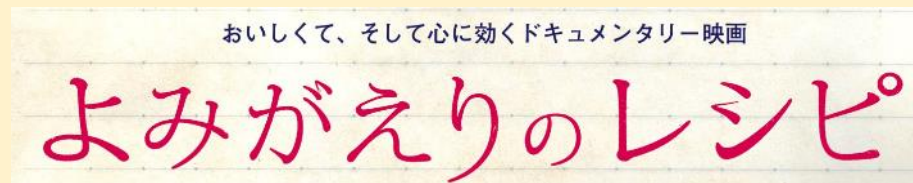 おいしくて、そして心に効くドキュメンタリー映画
よみがえりのレシピ